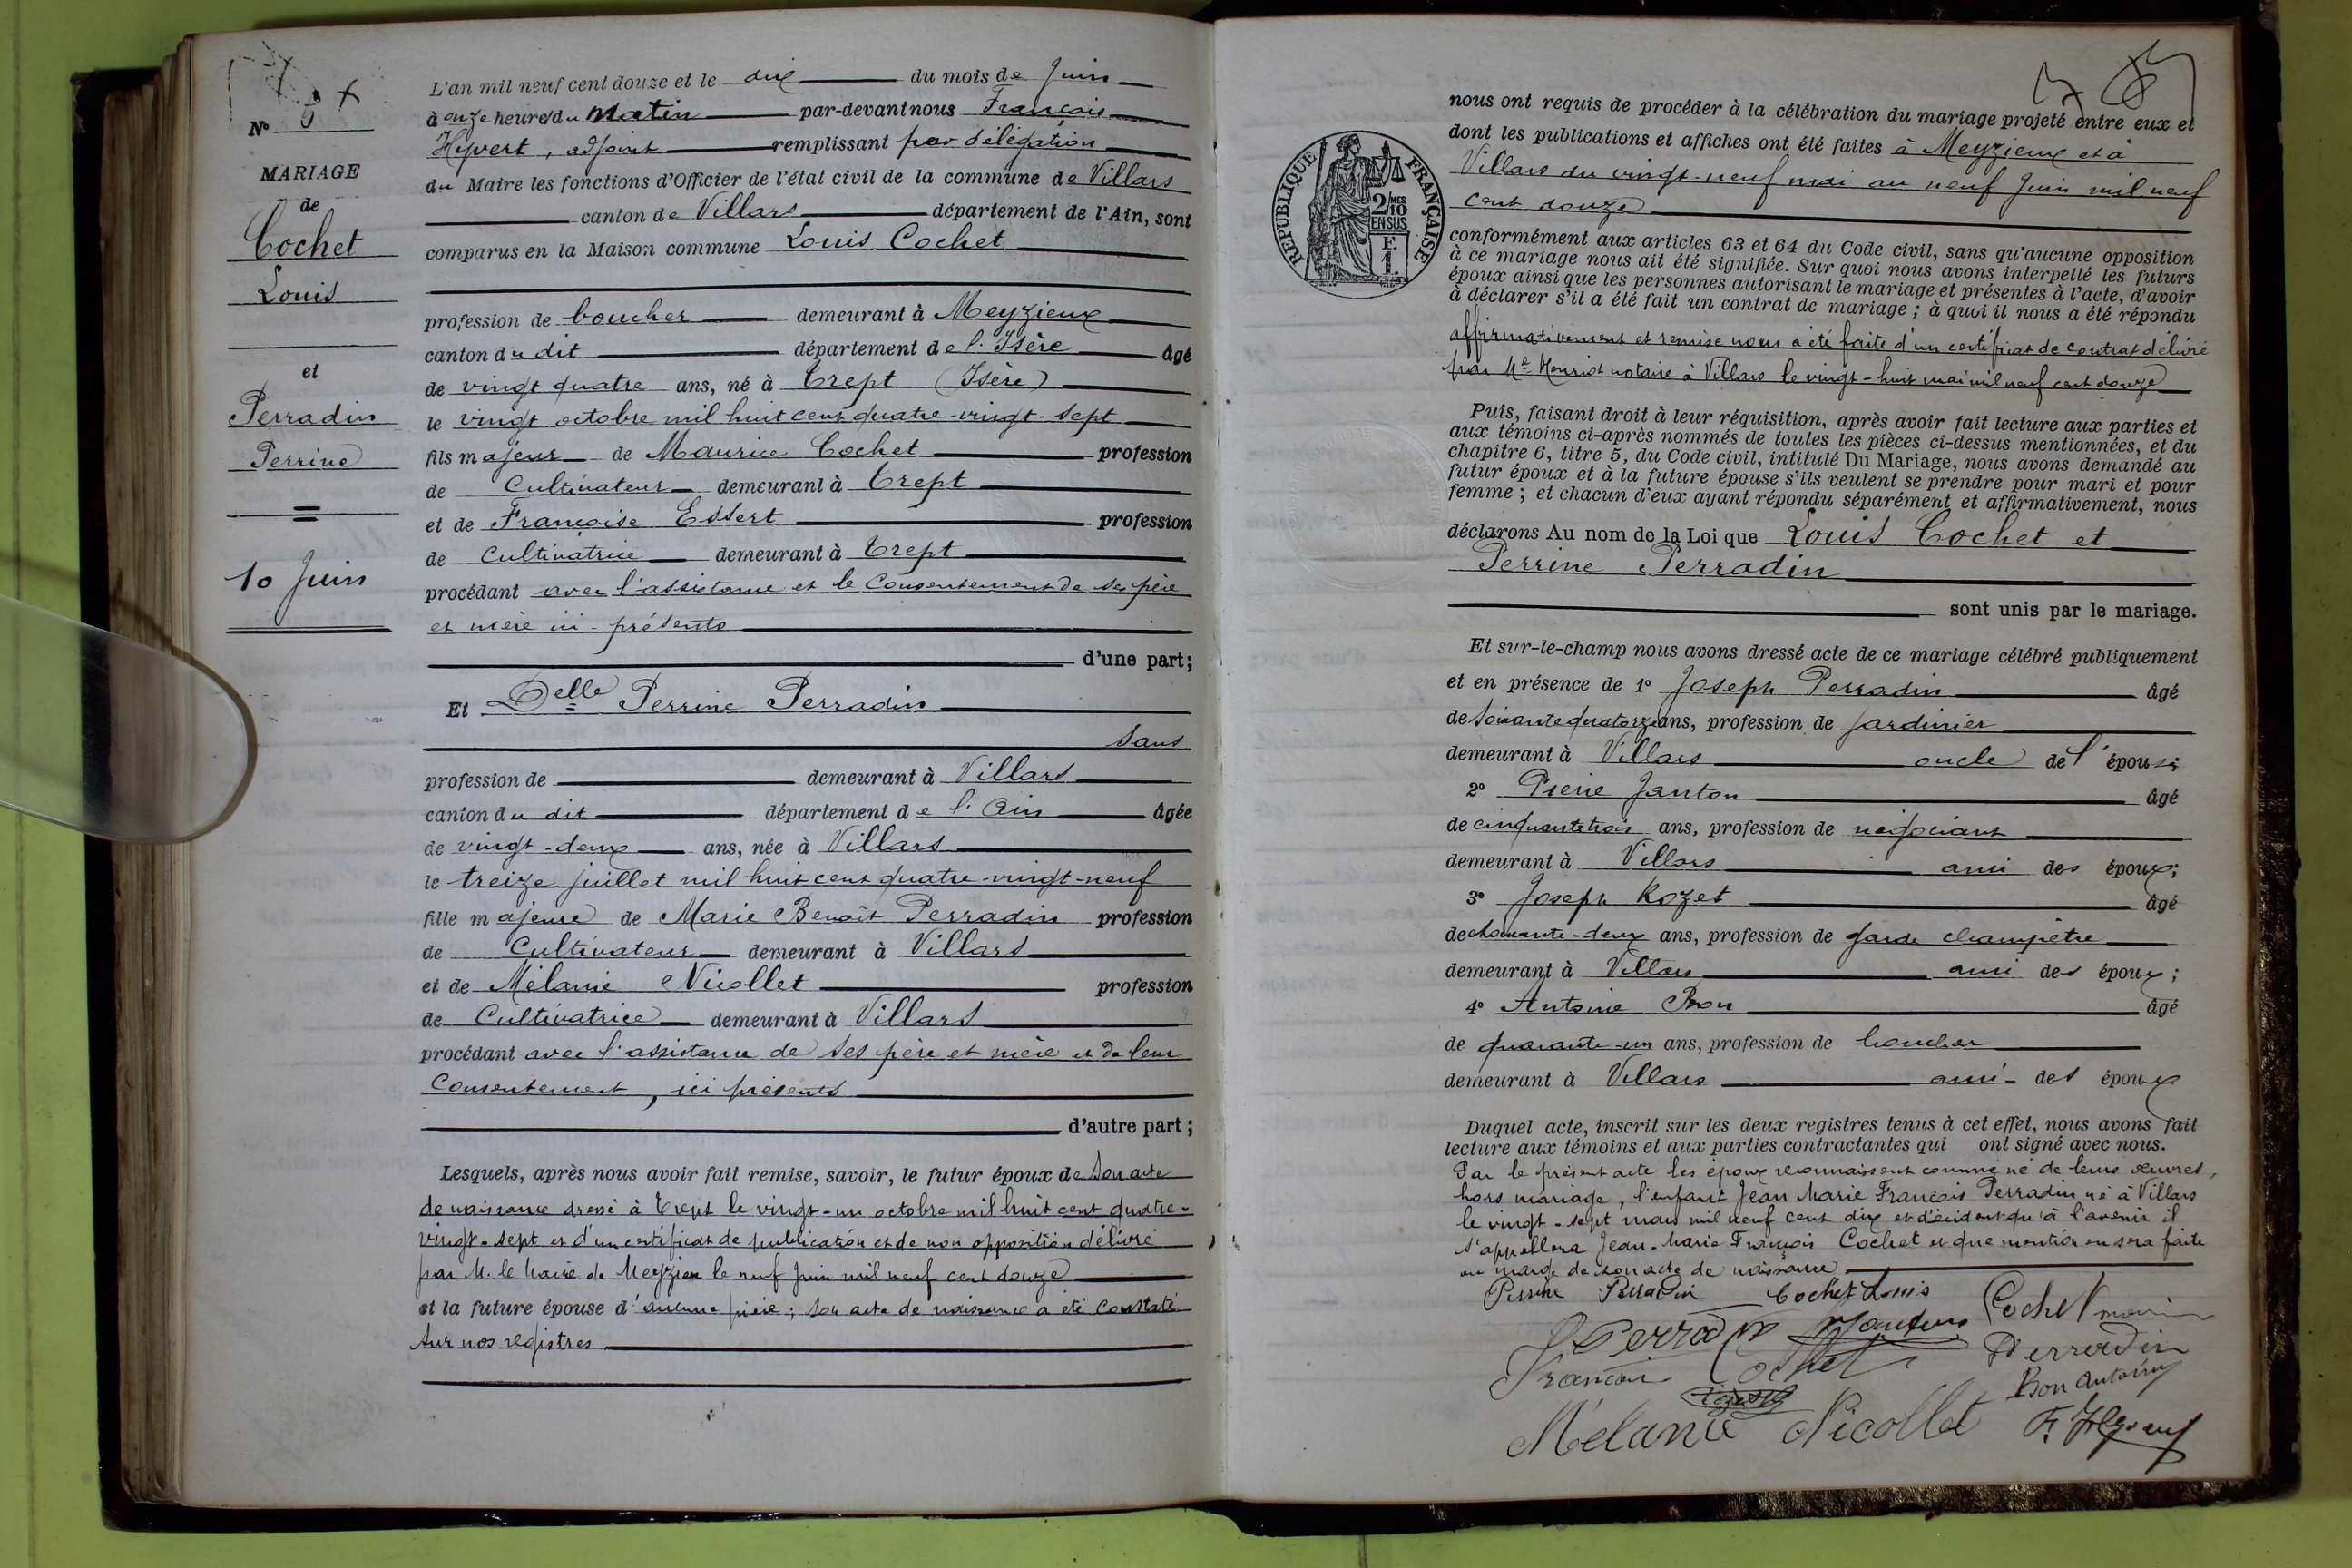 N° 8
MARIAGE
de
Cochet
Louis
et
Perradin
Perrine
10 Juin
L'an mil neuf cent douze et le dix du mois de Juin
à onze heures du matin par-devant nous François
Hyvert, adjoint remplissant par délégation
du Maire les fonctions d'Officier de l'état civil de la commune de Villars
canton de Villars département de l'Ain, sont
comparus en la Maison commune Louis Cochet
profession de boucher demeurant à Meyzieux
canton du dit département de l'Isère âgé
de vingt quatre ans, né à Trept (Isère)
le vingt octobre mil huit cent quatre-vingt-sept
fils majeur de Maurice Cochet profession
de Cultivateur demeurant à Trept
et de Françoise Essert profession
de Cultivatrice demeurant à Trept
procédant avec l'assistance et le Consentement de ses père
et mère ici-présents
d'une part;
Et Delle Perrine Perradin
sans
profession de demeurant à Villars
canton du dit département de l'Ain âgée
de vingt-deux ans, née à Villars
le treize juillet mil huit cent quatre-vingt-neuf
fille majeure de Marie Benoît Perradin profession
de Cultivateur demeurant à Villars
et de Mélanie Nicollet profession
de Cultivatrice demeurant à Villars
procédant avec l'assistance de ses père et mère et de leur
Consentement, ici présents
d'autre part;
Lesquels, après nous avoir fait remise, savoir, le futur époux de son acte
de naissance dressé à Trept le vingt-un octobre mil huit cent quatre-
vingt-sept et d'un certificat de publication et de non opposition délivré
par M. le Maire de Meyzieu le neuf Juin mil neuf cent douze
et la future épouse d'aucune pièce; son acte de naissance a été constaté
sur nos registres
nous ont requis de procéder à la célébration du mariage projeté entre eux et
dont les publications et affiches ont été faites à Meyzieux et à
Villars du vingt-neuf mai au neuf Juin mil neuf
cent douze
RÉPUBLIQUE FRANÇAISE
2/10 MES
EN SUS
F.
1.
conformément aux articles 63 et 64 du Code civil, sans qu'aucune opposition
à ce mariage nous ait été signifiée. Sur quoi nous avons interpellé les futurs
époux ainsi que les personnes autorisant le mariage et présentes à l'acte, d'avoir
à déclarer s'il a été fait un contrat de mariage; à quoi il nous a été répondu
affirmativement et remise nous a été faite d'un certificat de contrat délivré
par Me Henriot notaire à Villars le vingt-huit mai mil neuf cent douze
Puis, faisant droit à leur réquisition, après avoir fait lecture aux parties et
aux témoins ci-après nommés de toutes les pièces ci-dessus mentionnées, et du
chapitre 6, titre 5, du Code civil, intitulé Du Mariage, nous avons demandé au
futur époux et à la future épouse s'ils veulent se prendre pour mari et pour
femme; et chacun d'eux ayant répondu séparément et affirmativement, nous
déclarons Au nom de la Loi que Louis Cochet et
Perrine Perradin
sont unis par le mariage.
Et sur-le-champ nous avons dressé acte de ce mariage célébré publiquement
et en présence de 1° Joseph Perradin âgé
de soixante quatorze ans, profession de jardinier
demeurant à Villars oncle de l'épouse;
2° Pierre Janton âgé
de cinquante trois ans, profession de négociant
demeurant à Villars ami des époux;
3° Joseph Rozet âgé
de ans, profession de garde champêtre
demeurant à Villars ami des époux;
4° Antoine Bon âgé
de quarante-un ans, profession de boucher
demeurant à Villars ami des époux
Duquel acte, inscrit sur les deux registres tenus à cet effet, nous avons fait
lecture aux témoins et aux parties contractantes qui ont signé avec nous.
Par le présent acte les époux reconnaissent comme né de leurs œuvres,
hors mariage, l'enfant Jean Marie François Perradin né à Villars
le vingt-sept mars mil neuf cent dix et décident qu'à l'avenir il
s'appellera Jean-Marie François Cochet et que mention en sera faite
en marge de son acte de naissance
Perrine Perradin Cochet Louis Cochet
J Perradin Janton Perradin
Cochet Bon Antoine
Mélanie Nicollet F. Hyvert